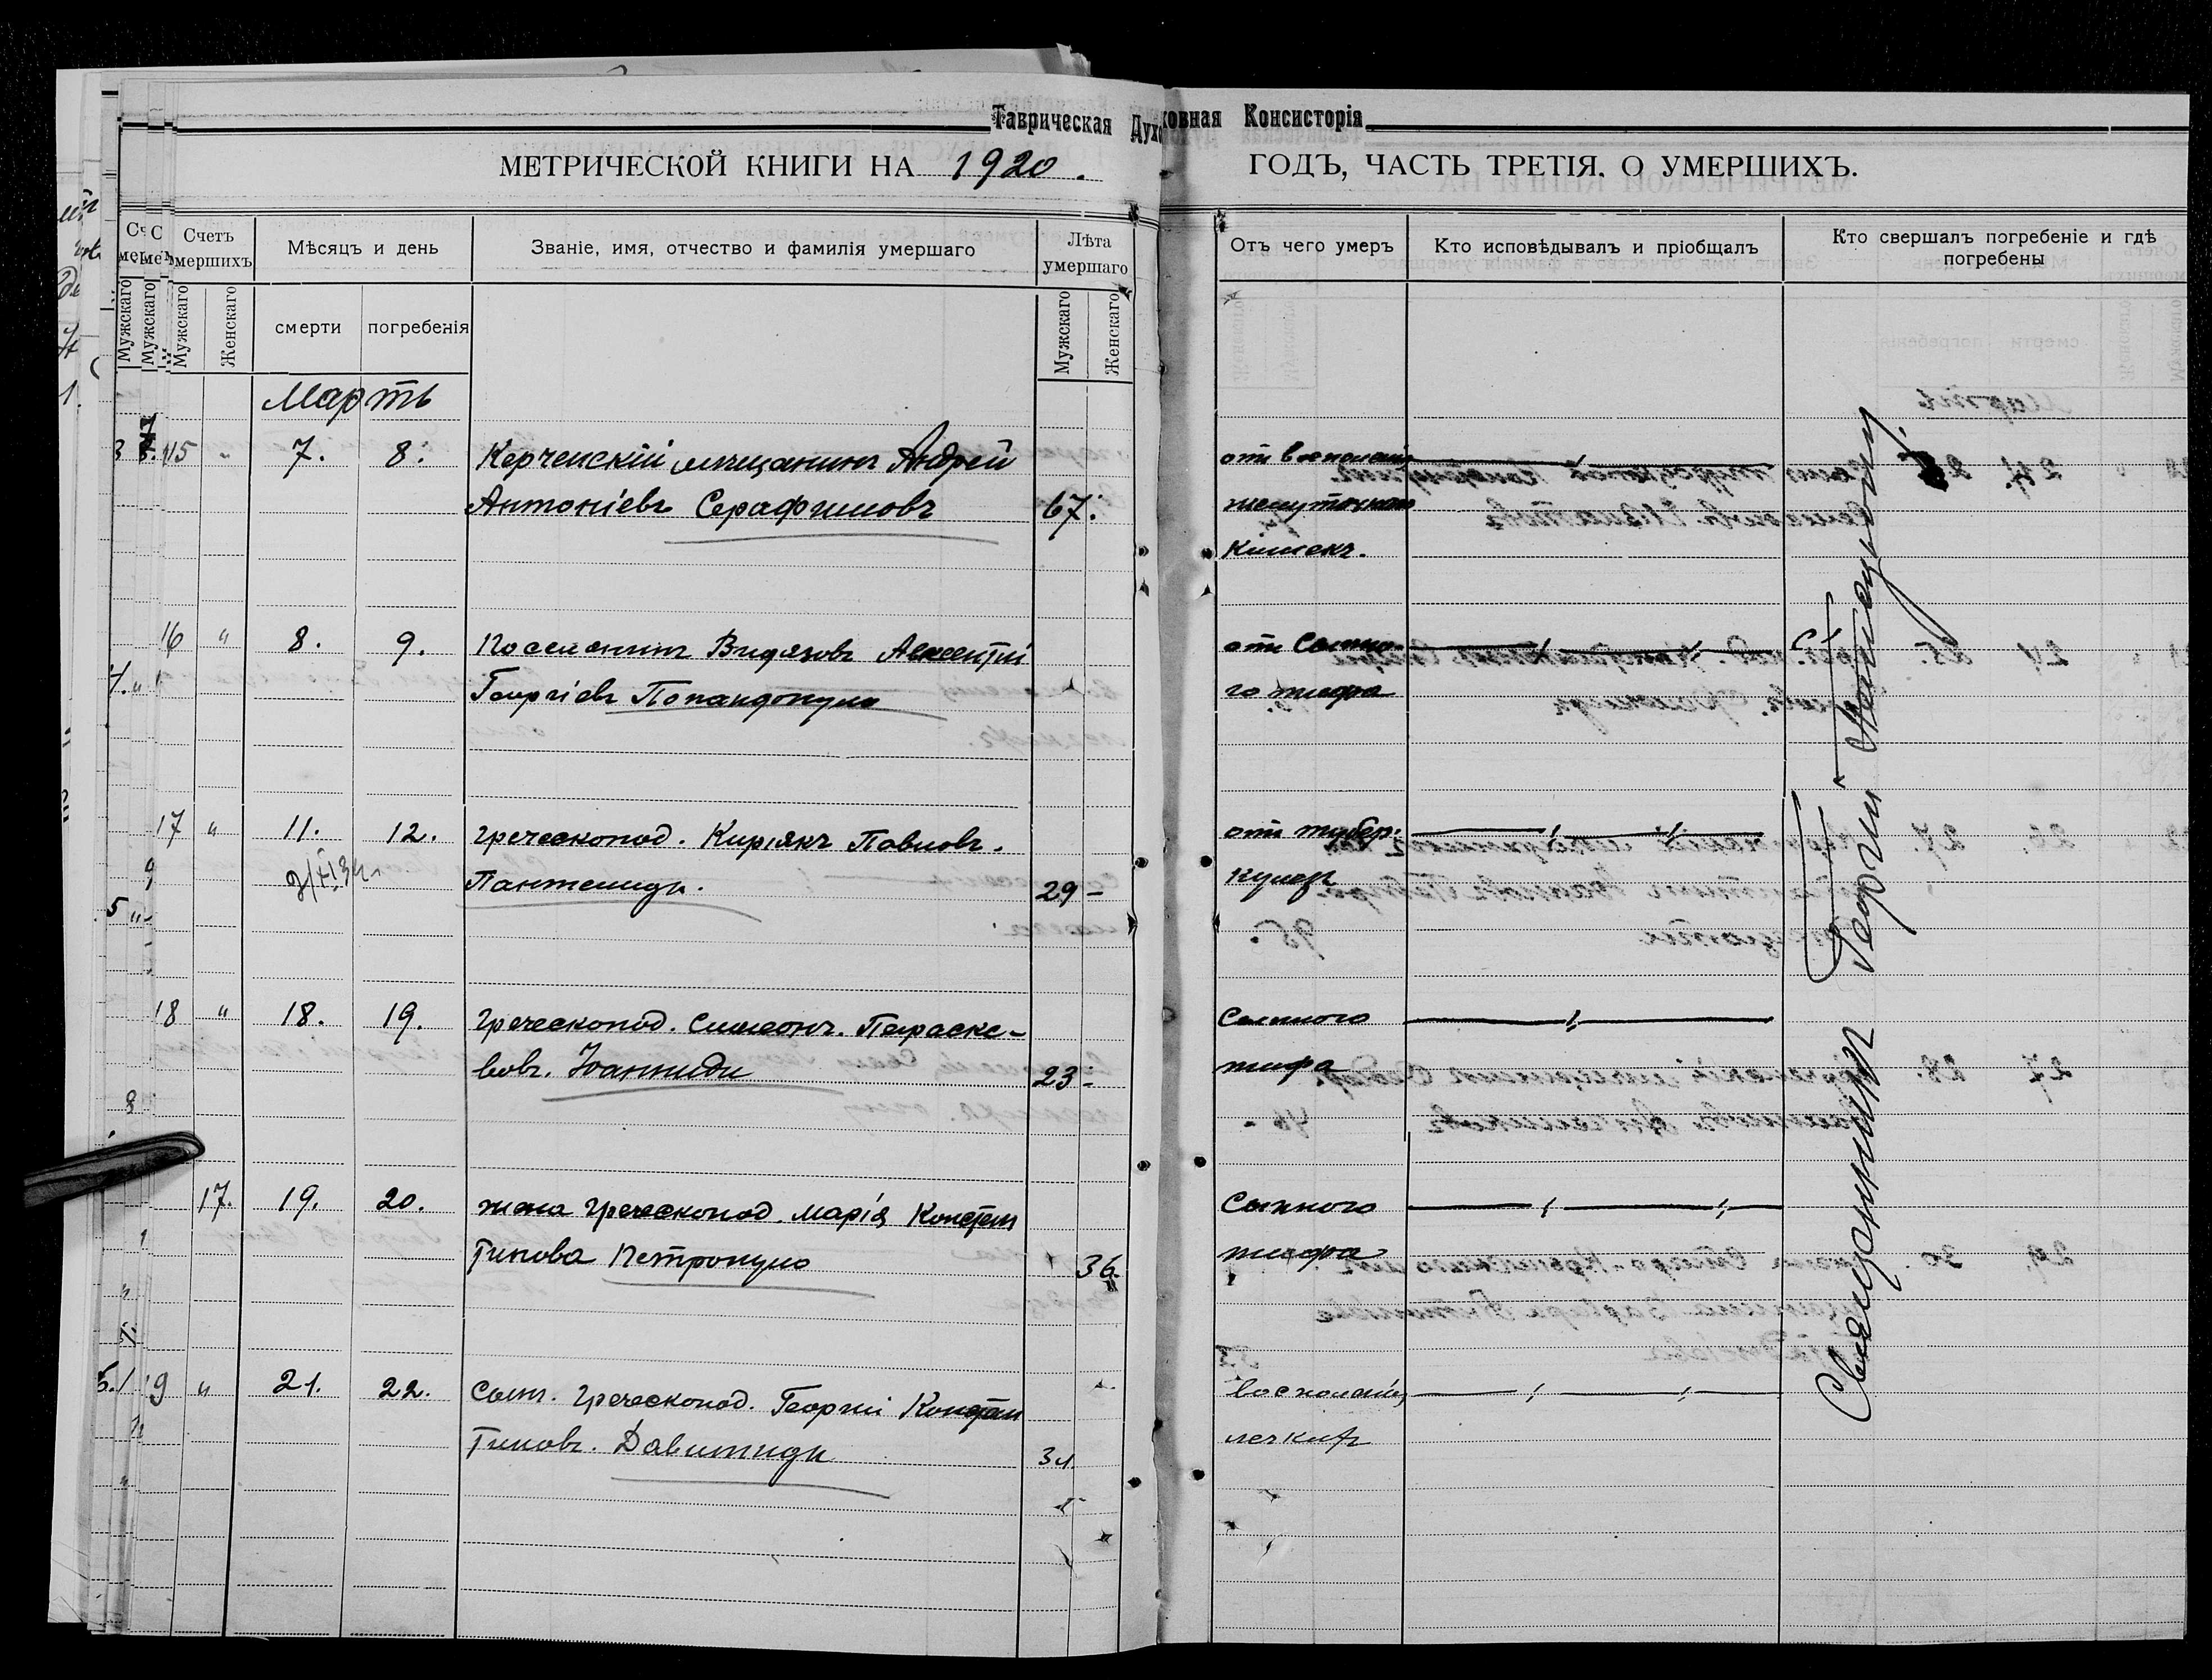 Таврическая Духовная Консисторія
МЕТРИЧЕСКОЙ КНИГИ НА 1920. ГОДЪ, ЧАСТЬ ТРЕТІЯ, О УМЕРШИХЪ.
Счетъ умершихъ
Мѣсяцъ и день
Званіе, имя, отчество и фамилія умершаго
Лѣта умершаго
Отъ чего умеръ
Кто исповѣдывалъ и пріобщалъ
Кто свершалъ погребеніе и гдѣ погребены
Мужскаго
Женскаго
смерти
погребенія
Мужскаго
Женскаго
Мартъ
15 " 7. 8. Керченскій мѣщанинъ Андрей
Антоніевъ Серафимовъ 67.
кишекъ.
16 " 8. 9. Поселянинъ Авксентій
Георгіевъ Попандопуло
от Сыпно-
го тифа
17 " 11. 12. греческопод. Киріякъ Павловъ.
Пантелиди. 29 –
от тубер-
кулеза
18 " 18. 19. греческопод. Симеонъ. Параске-
вовъ. Іоанниди 23 –
Сыпного
тифа
17. 19. 20. жена греческопод. Марія Констан
тинова Петропуло 36.
Сыпного
тифа
19 " 21. 22. Сынъ. греческопод. Георгій Констан
тиновъ. Давитиди
легкихъ
Священникъ Георгій